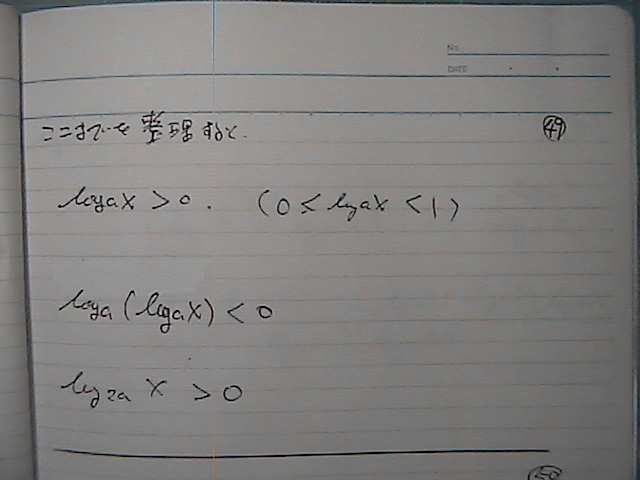 No.
DATE
ここまでを整理すると. ㊾
log_a x > 0. (0 ≤ log_a x < 1)
log_a (log_a x) < 0
log_2a x > 0
㊿